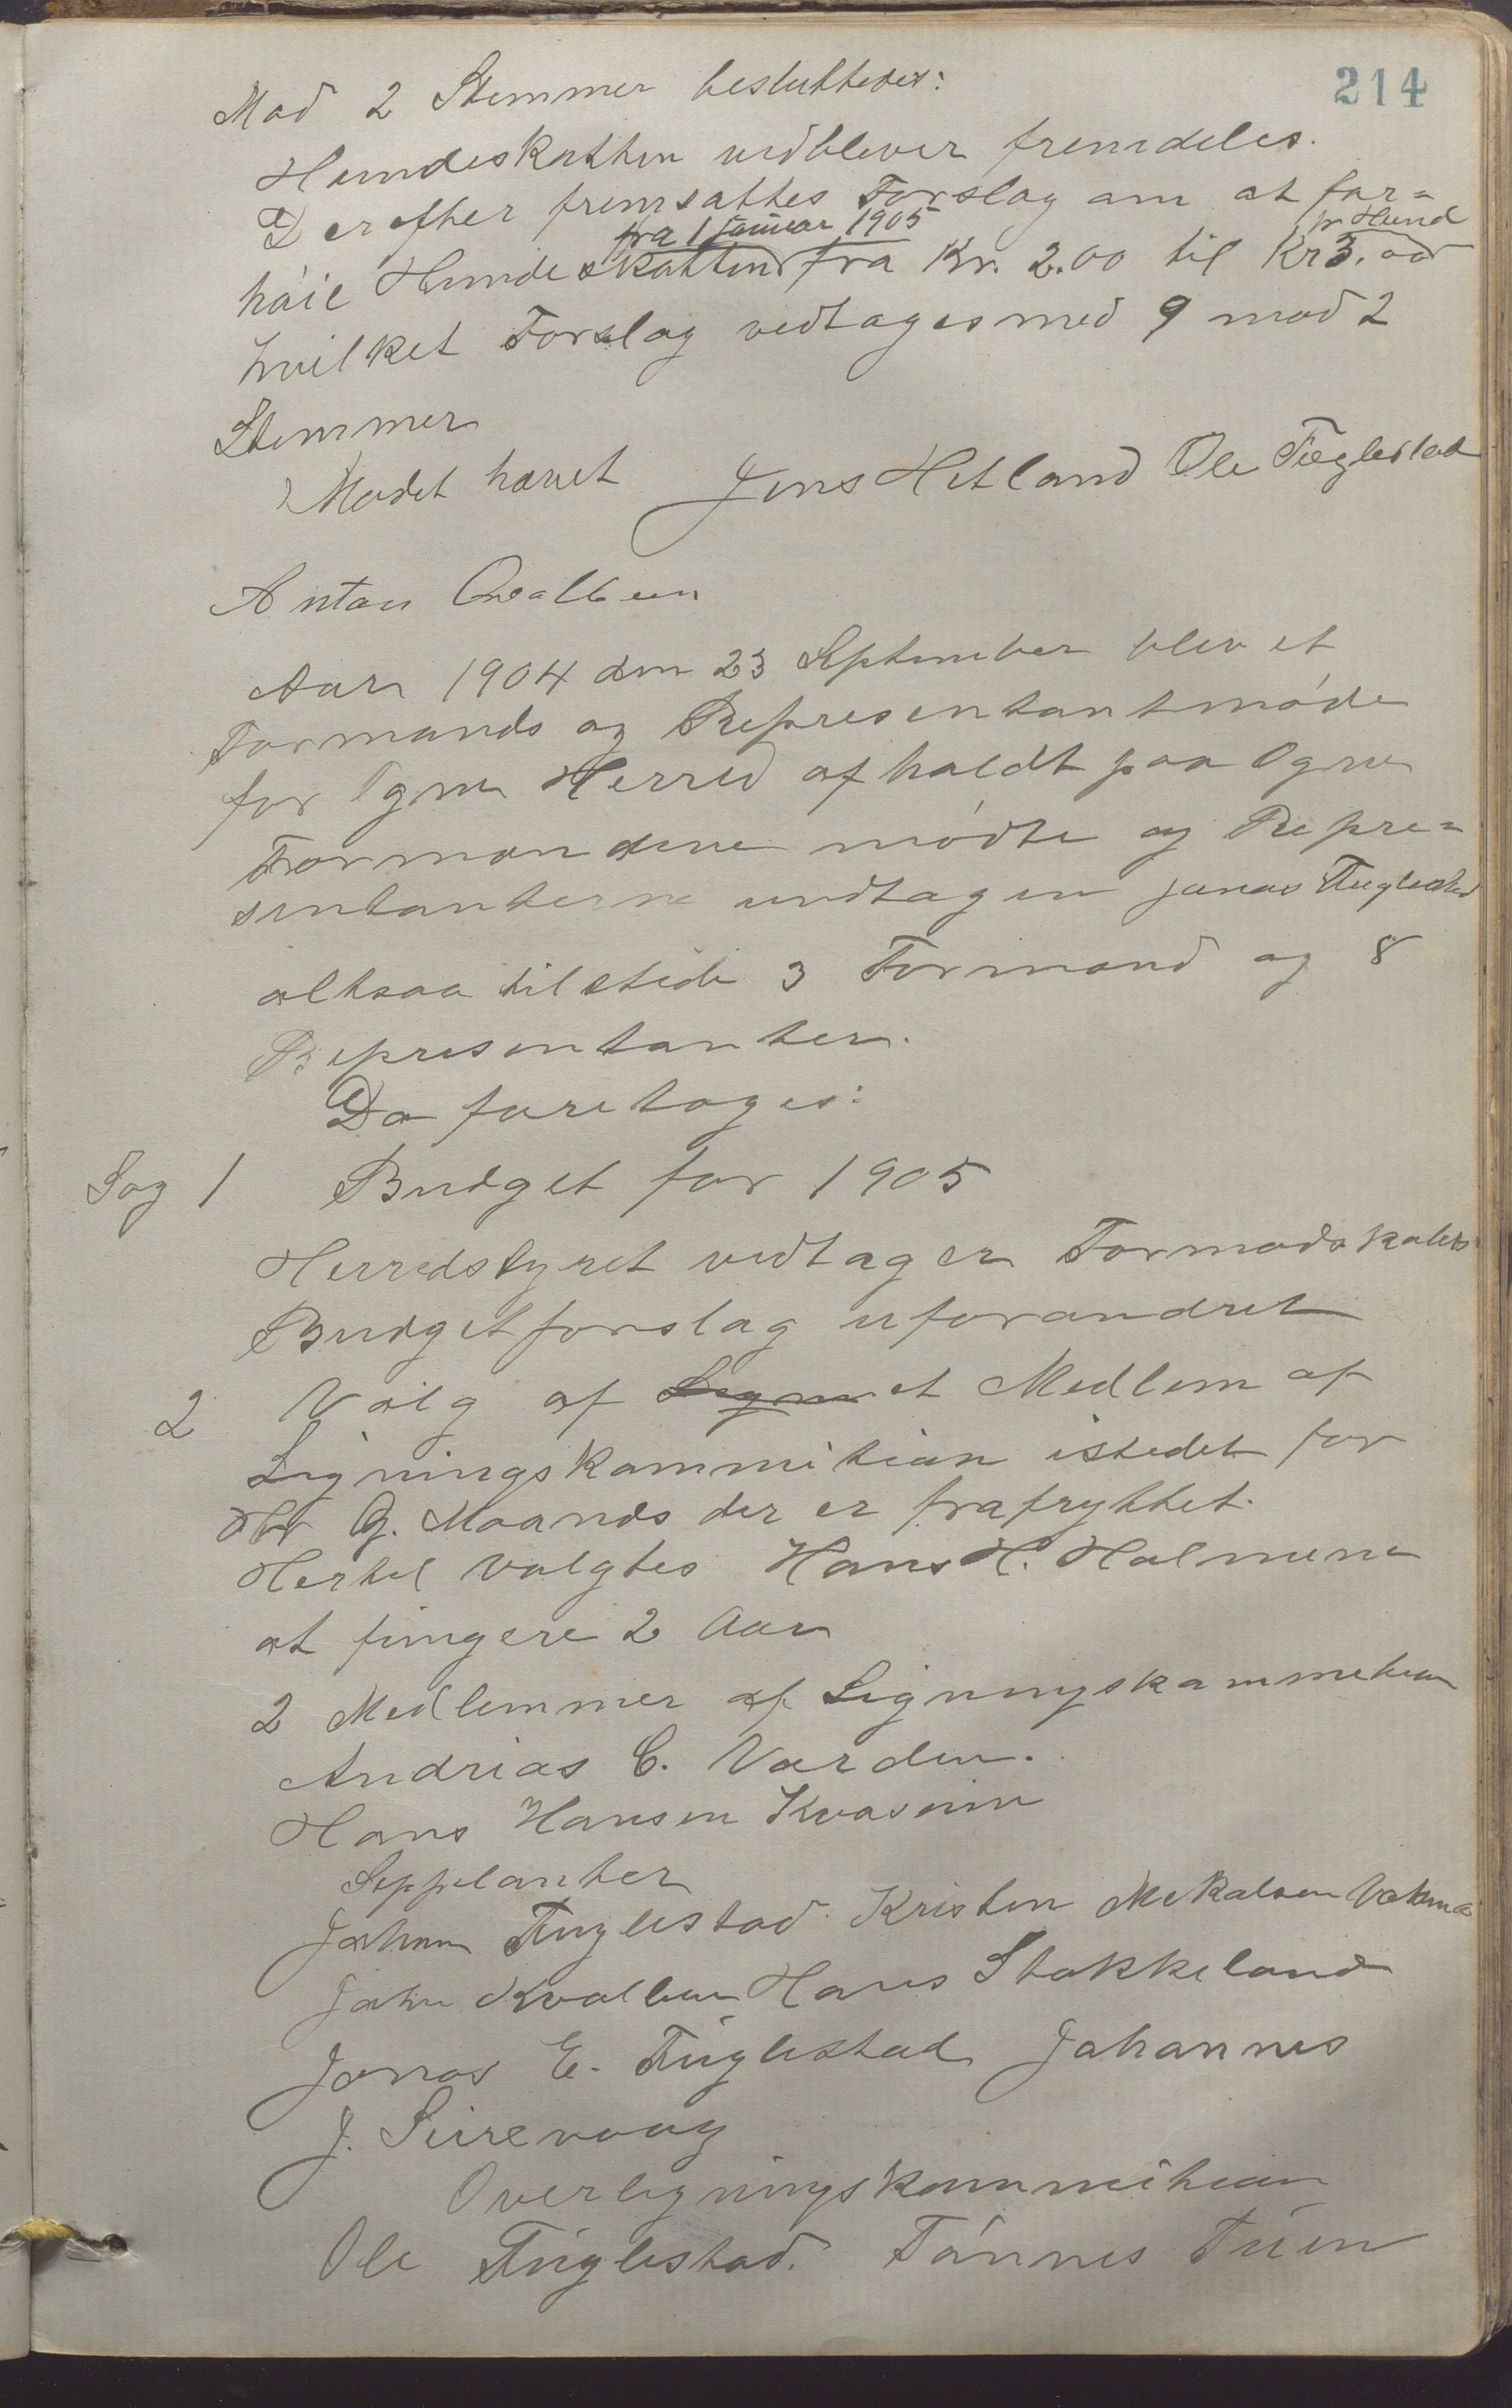 214
Mod 2 Stemmer besluttedes:
Hundeskatten vedbliver fremdeles.
Derefter fremsattes Forslag om at for=
fra 1 Januar 1905 pr Hund
høie Hundeskatten fra Kr. 2.00 til Kr 3.00
hvilket Forslag vedtages med 9 mod 2
Stemmer
Mødet hævet Jens Hetland Ole Fuglestad
Anton Qvalbein
Aar 1904 den 23 September blev et
Formands og Representantmøde
for Ogne Herred afholdt paa Ogne
Formændene mødte og Repre=
sentanterne undtagen Jonas Fuglestad
altsaa tilstede 3 Formænd og 8
Representanter.
Da foretoges:
Sag 1 Budget for 1905
Herredstyret vedtager Formadskabets
Budgetforslag uforandret
2 Valg af Ligni et Medlem af
Ligningskommitien istedet for
G. Moands der er frafryttet.
Hertil valgtes Hans H. Holmene
at fungere 2 Aar
2 Medlemmer af Ligningskommetien
Andrias C. Varden.
Hans Hansen Kvaseim
Sepplanter
Johan Fuglestad Kristen Mekalsen
John Kvalbein Hans Stokkeland
Jonas E. Fuglestad Johannes
J. Sirevaag
Overligningskommitien
Ole Fuglestad. Tønnes Tuen